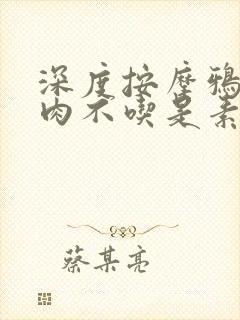 深度按摩鴉
肉不喫是素
蔡某亮